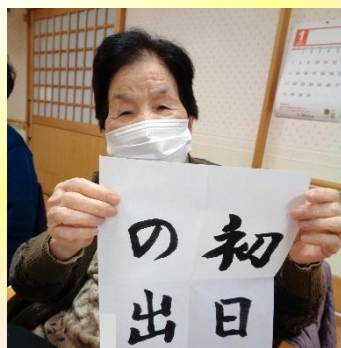 初日
の出
1